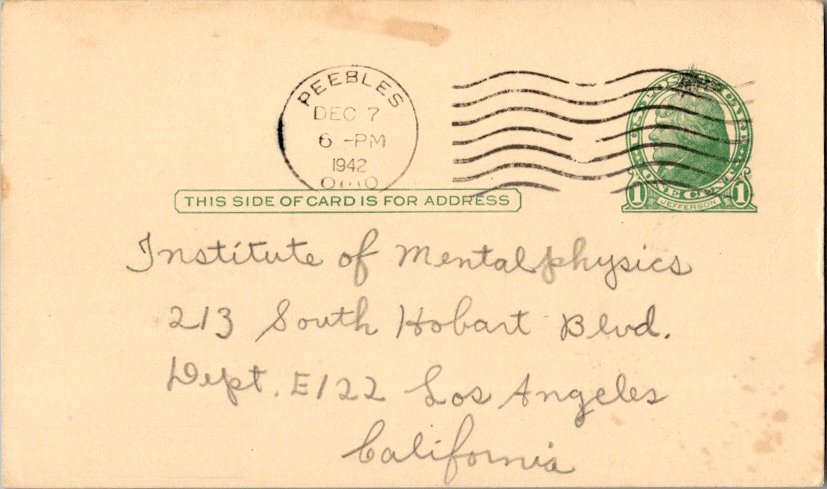 PEEBLES
DEC 7
6 -PM
1942
OHIO
1 JEFFERSON 1
THIS SIDE OF CARD IS FOR ADDRESS
Institute of Mentalphysics
213 South Hobart Blvd.
Dept. E122 Los Angeles
California